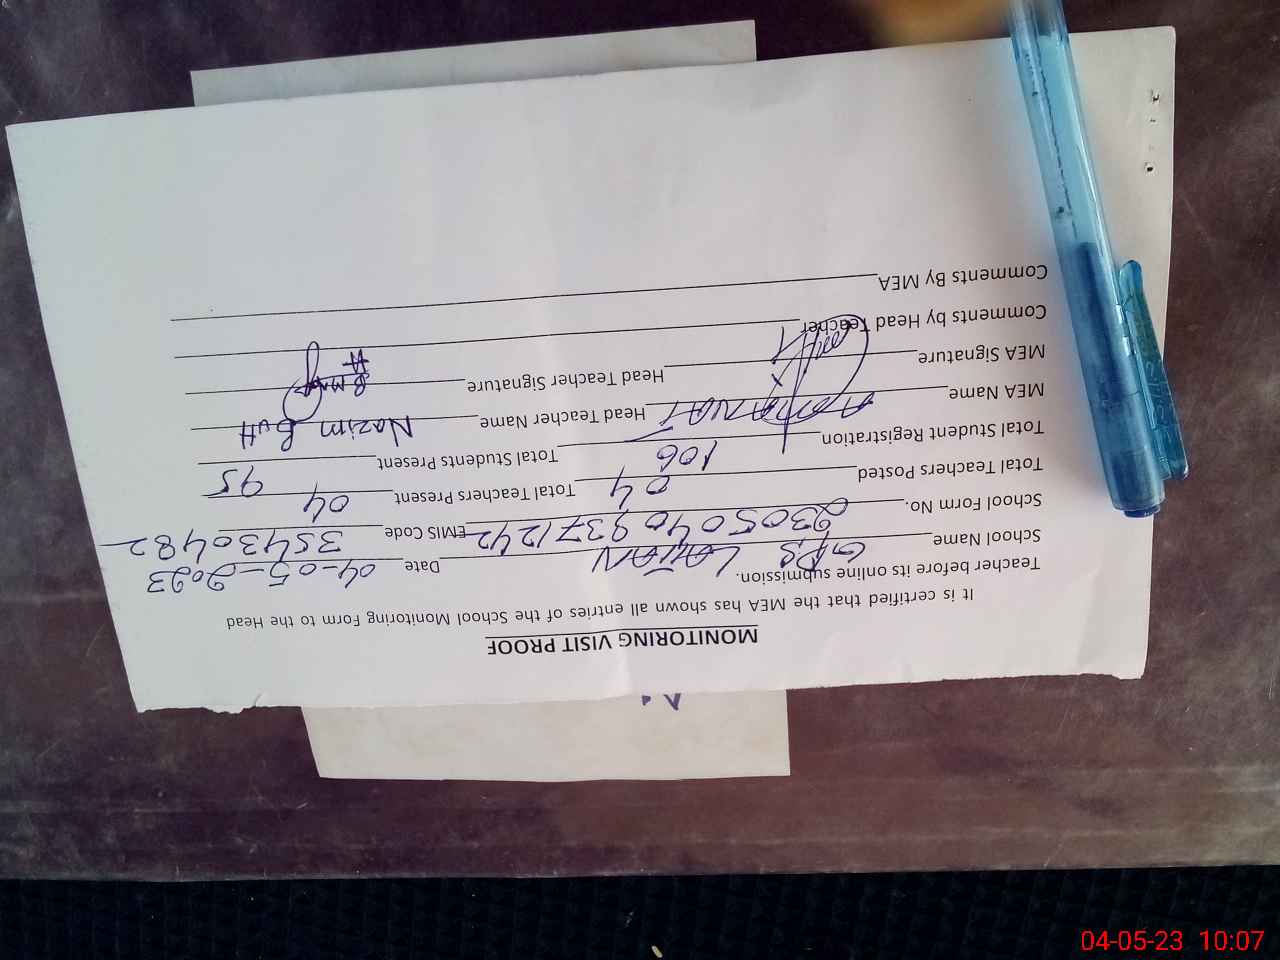 MONITORING VISIT PROOF
It is certified that the MEA has shown all entries of the School Monitoring Form to the Head
Teacher before its online submission.
School Name GPS Date 04-05-2023
School Form No. 23050409371242 EMIS Code 35430482
Total Teachers Posted 04 Total Teachers Present 04
Total Student Registration 106 Total Students Present 95
MEA Name Head Teacher Name Nazim Butt
MEA Signature Head Teacher Signature
Comments by Head Teacher
Comments By MEA
04-05-23 10:07